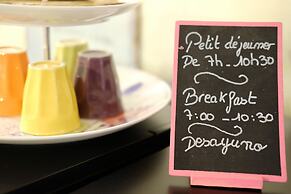 Petit déjeuner
De 7h - 10h30
Breakfast
7:00 - 10:30
Desayuno